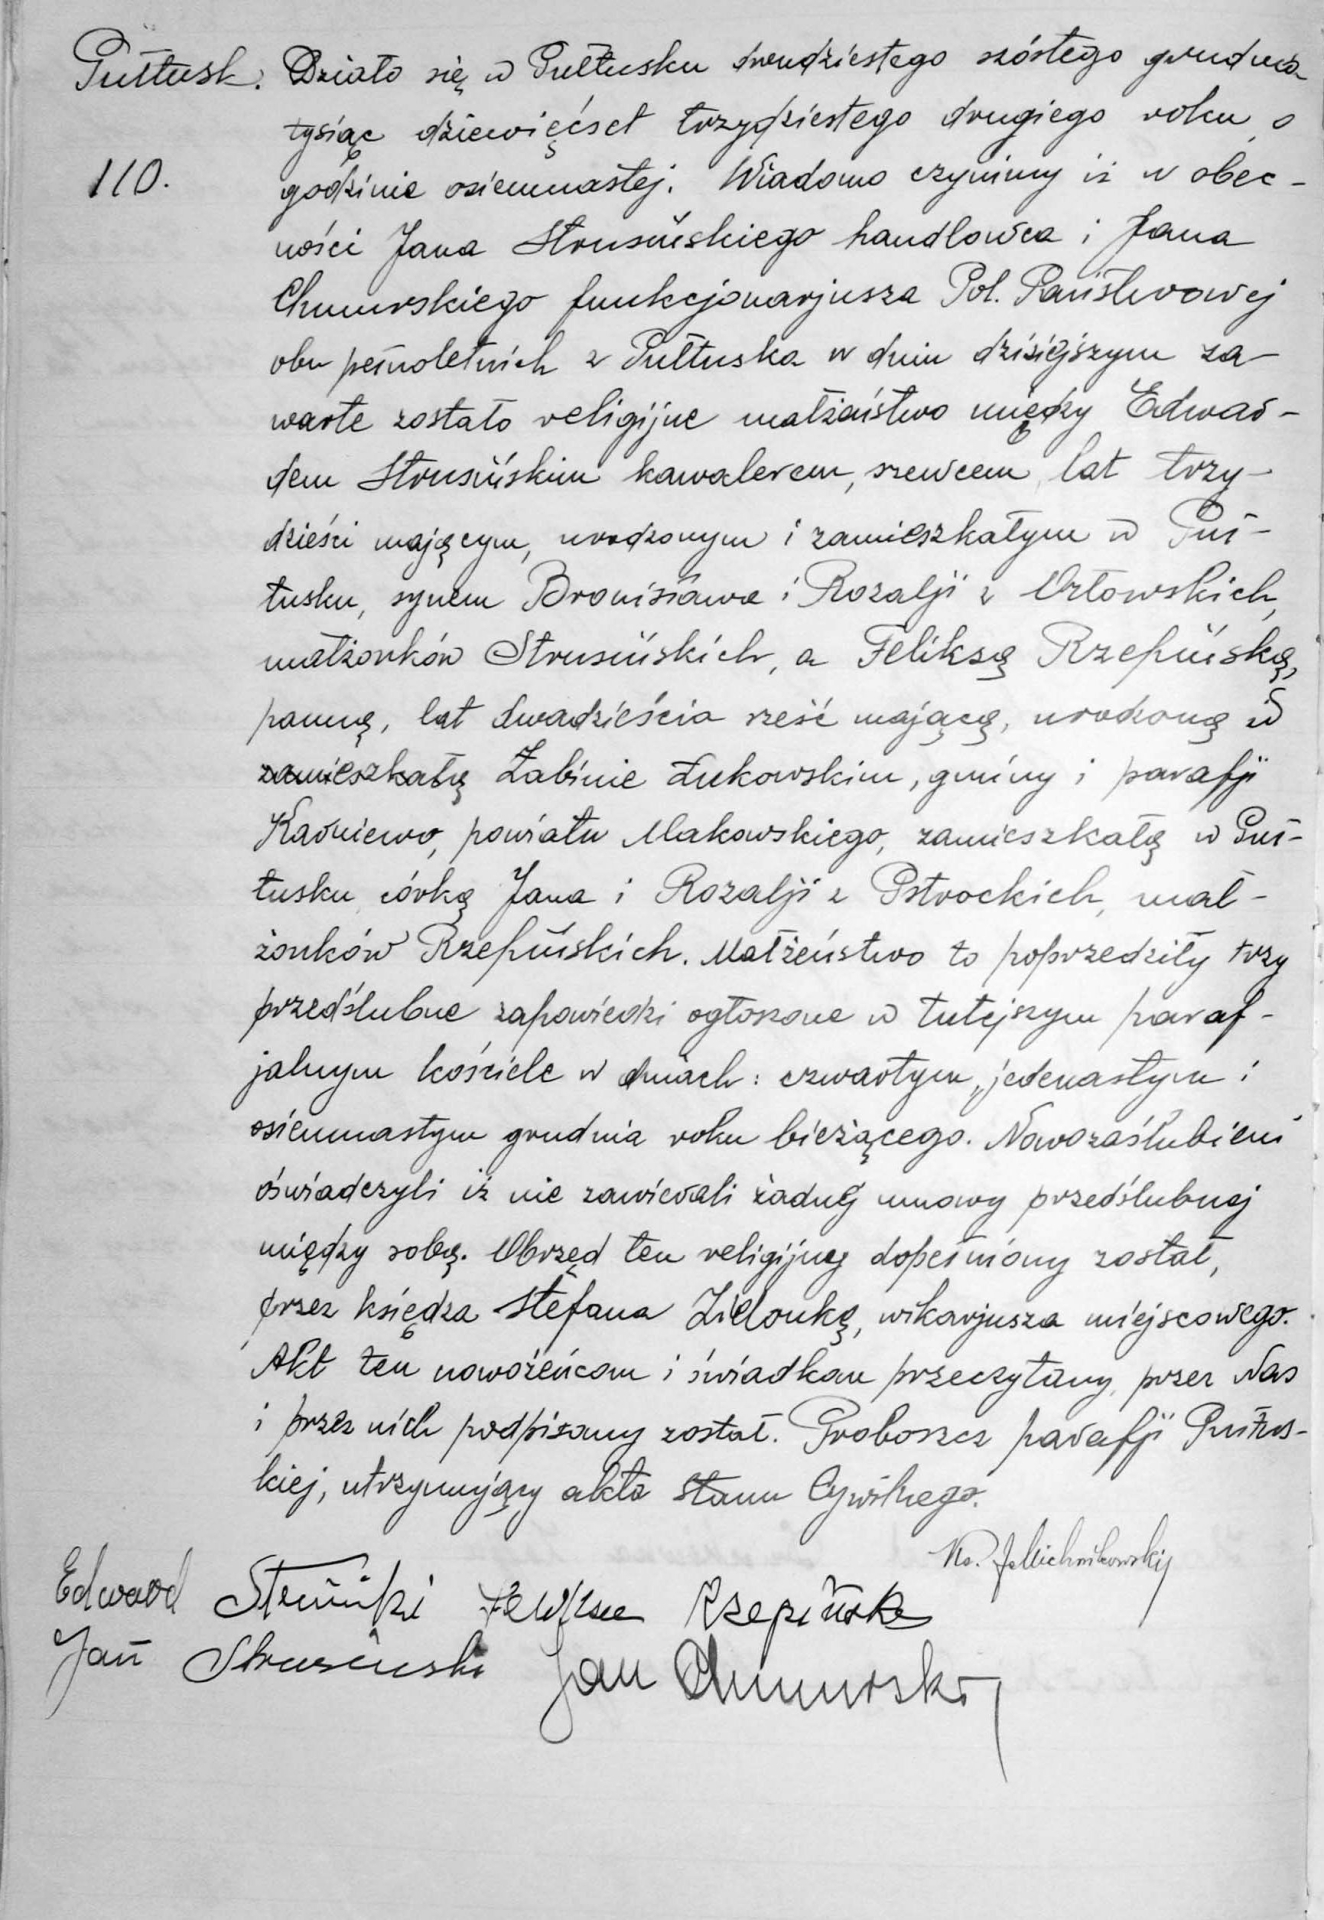 Pułtusk. Działo się w Pułtusku dwudziestego szóstego grudnia
tysiąc dziewięćset trzydziestego drugiego roku o
110. godzinie osiemnastej. Wiadomo czynimy iż w obec-
ności Jana Strusińskiego handlowca i Jana
Chmurskiego funkcjonarjusza Pol. Państwowej
obu pełnoletnich z Pułtuska w dniu dzisiejszym za-
warte zostało religijne małżeństwo między Edwar-
dem Strusińskim kawalerem, szewcem, lat trzy-
dzieści mającym, urodzonym i zamieszkałym w Puł-
tusku, synem Bronisława i Rozalji z Orłowskich,
małżonków Strusińskich, a Feliksą Rzepińską,
panną, lat dwadzieścia sześć mającą, urodzoną w
zamieszkałą Żabinie Łukowskim, gminy i parafji
Karniewo, powiatu Makowskiego, zamieszkałą w Puł-
tusku córką Jana i Rozalji z Pstrockich, mał-
żonków Rzepińskich. Małżeństwo to poprzedziły trzy
przedślubne zapowiedzi ogłoszone w tutejszym paraf-
jalnym kościele w dniach: czwartym, jedenastym i
osiemnastym grudnia roku bieżącego. Nowozaślubieni
oświadczyli iż nie zawierali żadnej umowy przedślubnej
między sobą. Obrzęd ten religijny dopełniony został,
przez księdza Stefana Zielonkę, wikarjusza miejscowego.
Akt ten nowożeńcom i świadkom przeczytany, przez Nas
i przez nich podpisany został. Proboszcz parafji Pułtus-
kiej, utrzymujący akta Stanu Cywilnego.
Ks. J. Michnikowski
Edward Strusiński Feliksa Rzepińska
Jan Strusiński Jan Chmurski